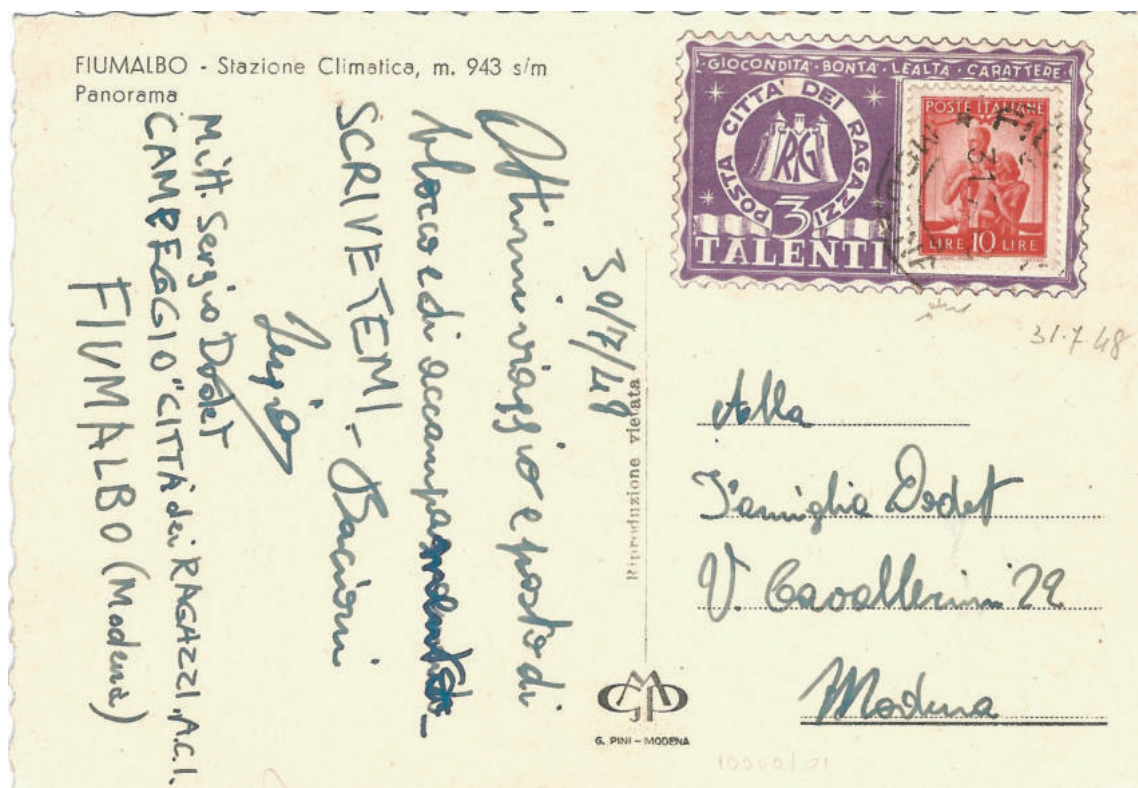 FIUMALBO - Stazione Climatica, m. 943 s/m
Panorama
30/7/48
Ottimo viaggio e posto di
blocco e di accampamento
SCRIVETEMI - Bacioni
Sergio
Mitt. Sergio Dodet
CAMPEGGIO "CITTÀ dei RAGAZZI" A.C.I.
FIUMALBO (Modena)
Riproduzione vietata
G. PINI - MODENA
GIOCONDITÀ · BONTÀ · LEALTÀ · CARATTERE
POSTA CITTÀ DEI RAGAZZI
RG
3
TALENTI
POSTE ITALIANE
LIRE 10 LIRE
31.7.48
Alla
Famiglia Dodet
V. Cavallerini 22
Modena